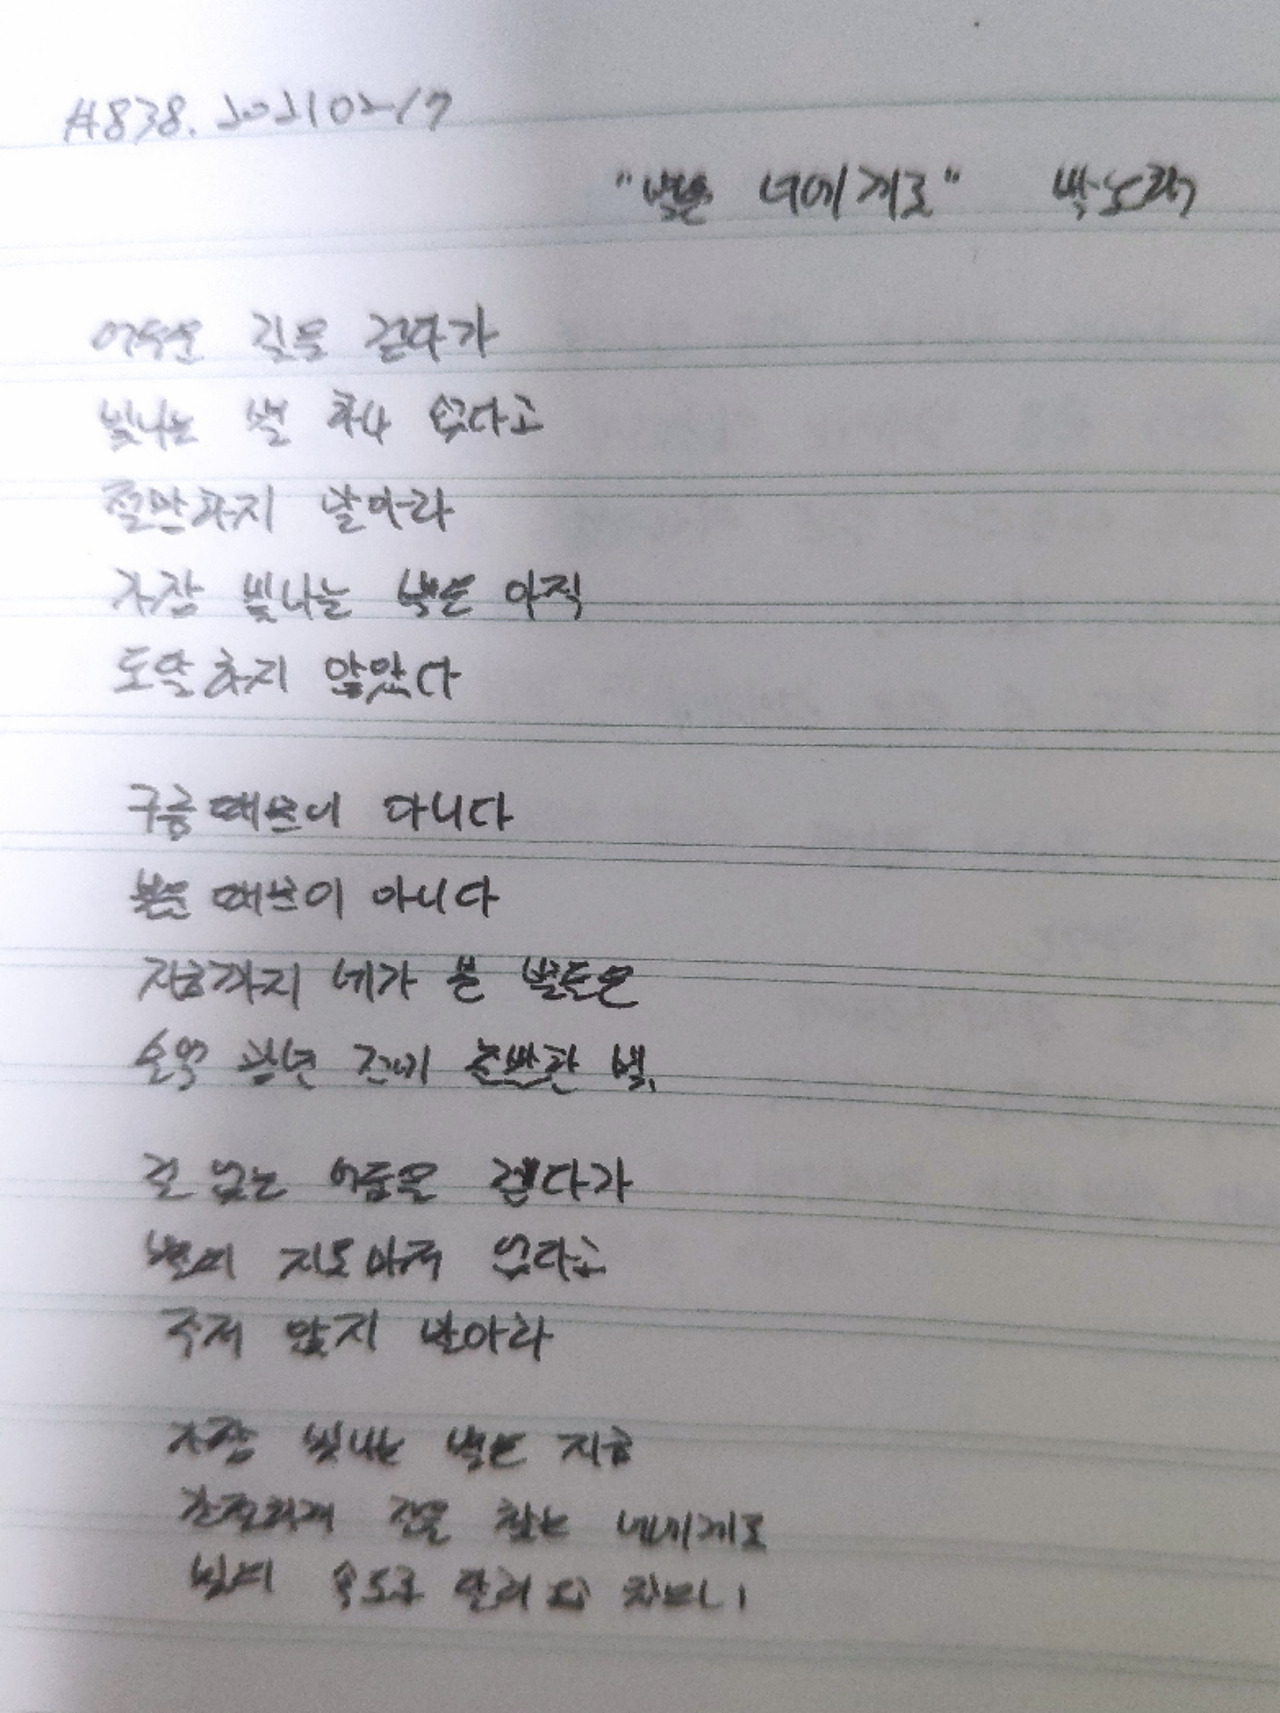 #838. 20210217
"별은 너에게로" 박노해
어두운 길을 걷다가
빛나는 별 하나 없다고
절망하지 말아라
가장 빛나는 별은 아직
도달하지 않았다
구름 때문이 아니다
불운 때문이 아니다
지금까지 네가 본 별들은
수억 광년 전에 출발한 별,
길 없는 어둠을 걷다가
별의 지도마저 없다고
주저 앉지 말아라
가장 빛나는 별은 지금
간절하게 길을 찾는 너에게로
빛의 속도로 달려 오고 있으니